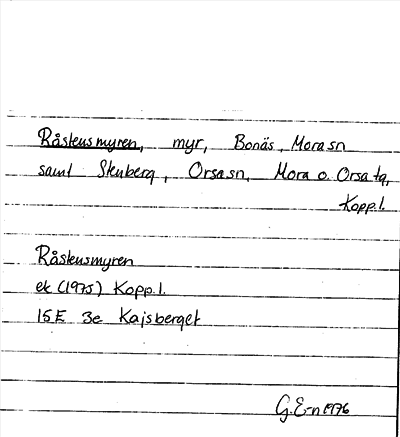 Råstensmyren, myr, Bonäs, Mora sn
samt Stenberg, Orsa sn, Mora o. Orsa tg,
Kopp.l.
Råstensmyren
ek (1975) Kopp.l.
15E 3e Kajsberget
G.E-n 1976